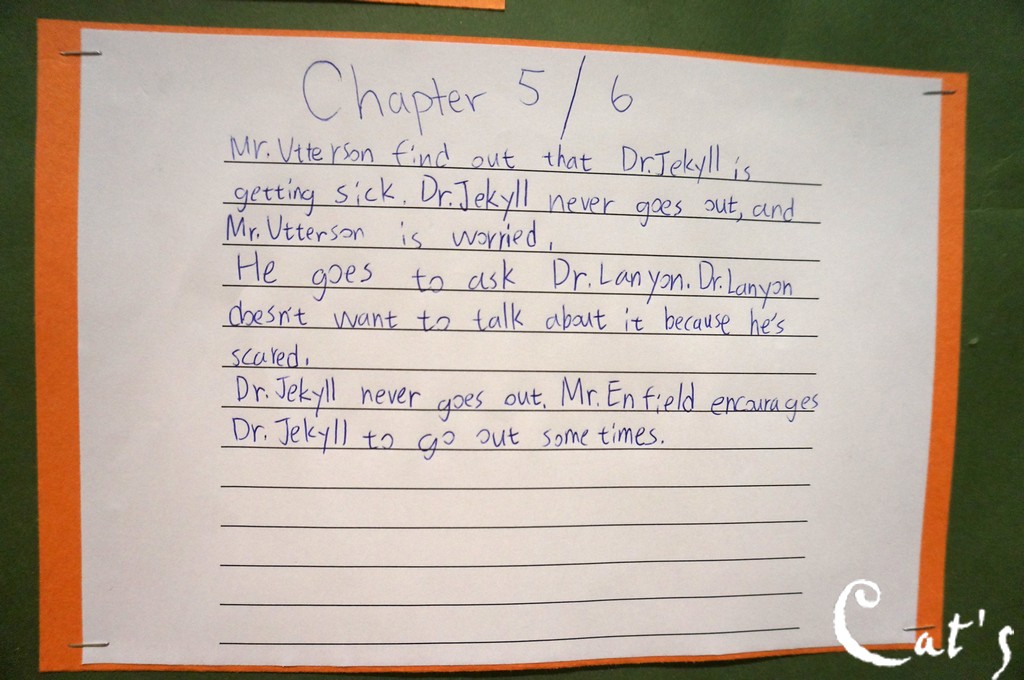 Chapter 5/6
Mr. Utterson find out that Dr. Jekyll is
getting sick. Dr. Jekyll never goes out, and
Mr. Utterson is worried.
He goes to ask Dr. Lanyon. Dr. Lanyon
doesn't want to talk about it because he's
scared.
Dr. Jekyll never goes out. Mr. Enfield encourages
Dr. Jekyll to go out some times.
Cat's